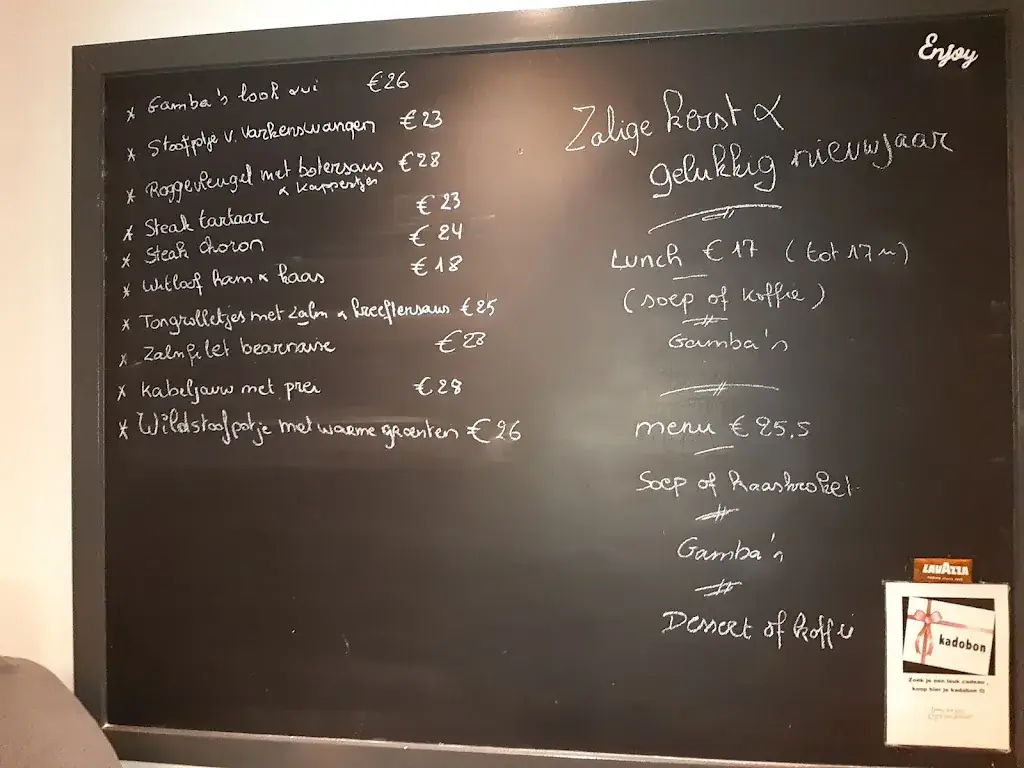 Enjoy
* Gamba's look €26
* Stoofpotje v. Varkenswangen €23
* Roggevleugel met botersaus €28
& kappertjes
* Steak tartaar €23
* Steak choron €24
* Witloof ham & kaas €18
* Tongrolletjes met zalm & kreeftensaus €25
* Zalmfilet bearnaise €23
* Kabeljauw met prei €28
* Wildstoofpotje met warme groenten €26
Zalige kerst &
gelukkig nieuwjaar
Lunch €17 (tot 17u)
(soep of koffie)
Gamba's
menu €25,5
Soep of kaaskroket
Gamba's
Dessert of koffie
LAVAZZA
kadobon
Zoek je een leuk cadeau,
koop hier je kadobon